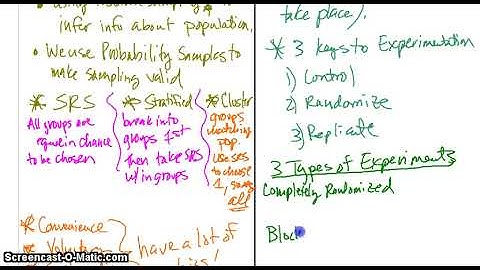 infer info about population.
• We use Probability Samples to
make sampling valid
* SRS
All groups are
equal in chance
to be chosen
* Stratified
break into
groups 1st
then take SRS
w/in groups
* Cluster
groups
matching
pop.
use SRS
to choose
1, survey
all
* Convenience
* Voluntary
have a lot of
take place).
* 3 keys to Experimentation
1) Control
2) Randomize
3) Replicate
3 Types of Experiments
Completely Randomized
Bloc
Screencast-O-Matic.com